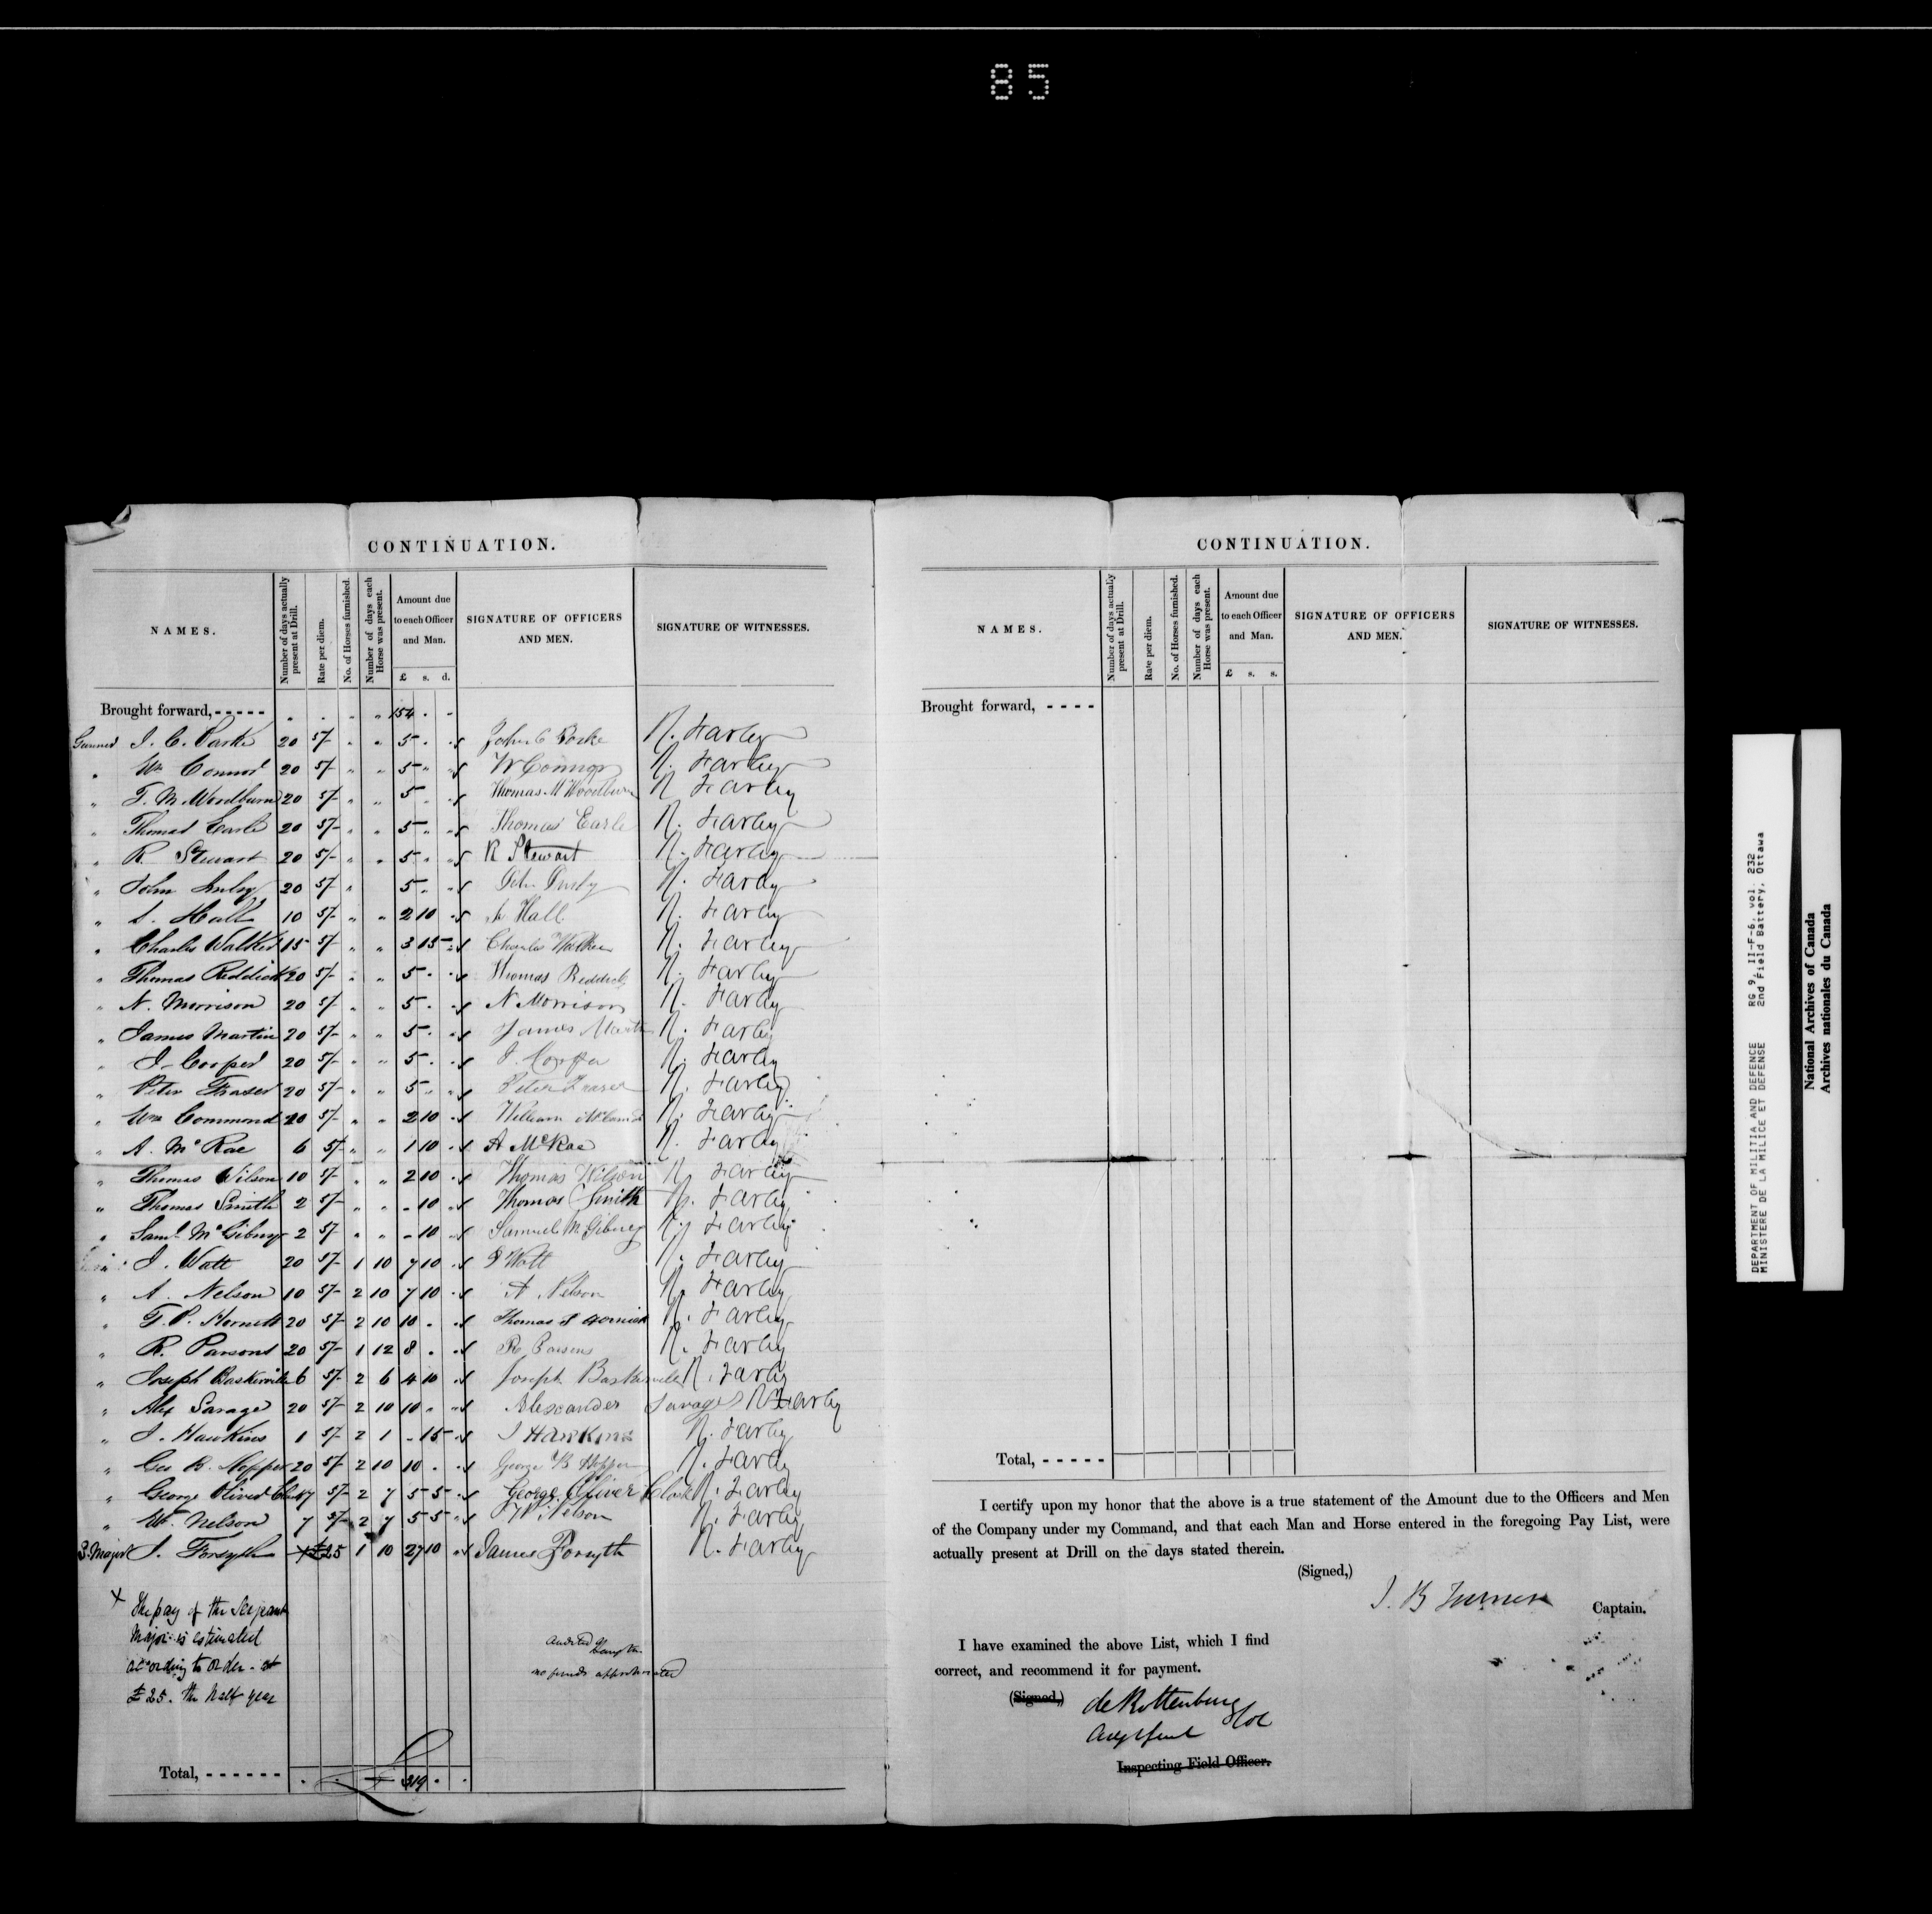 85
CONTINUATION.
NAMES. Number of days actually present at Drill. Rate per diem. No. of Horses furnished. Number of days each Horse was present. Amount due to each Officer and Man. £ s. d. SIGNATURE OF OFFICERS AND MEN. SIGNATURE OF WITNESSES.
Brought forward, - - - - - . . „ „ 154 . -
Gunner J. C. Parke 20 5/- „ „ 5 . . John C Parke N. Farley
„ Wm Connor 20 5/- „ „ 5 „ „ W Connor N. Farley
„ T. M. Woodburn 20 5/- „ „ 5 . . Thomas M Woodburn N Farley
„ Thomas Earle 20 5/- „ „ 5 „ „ Thomas Earle N. Farley
„ R. Stewart 20 5/- „ „ 5 „ „ R Stewart N. Farley
„ John 20 5/- „ 5 . „ John N. Farley
„ S. Hall 10 5/- „ „ 2 10 . Hall N. Farley
„ Charles Walker 15 5/- „ „ 3 15 - Charles Walker N. Farley
„ Thomas Reddick 20 5/- „ „ 5 . . Thomas Reddick N. Farley
„ N. Morrison 20 5/- „ „ 5 . . N Morrison N. Farley
„ James Martin 20 5/- „ „ 5 . . James Martin N. Farley
„ J. Cooper 20 5/- „ „ 5 . . J. Cooper N. Farley
„ Peter Fraser 20 5/- „ „ 5 . „ Peter Fraser N. Farley
„ Wm Commond 20 5/- „ „ 2 10 . William N. Farley
„ A. McRae 6 5/- „ „ 1 10 . A McRae N. Farley
„ Thomas Wilson 10 5/- „ „ 2 10 . Thomas Wilson N. Farley
„ Thomas Smith 2 5/- „ „ - 10 . Thomas Smith N. Farley
„ Saml McGibney 2 5/- „ „ - 10 „ Samuel McGibney N. Farley
„ J. Watt 20 5/- 1 10 7 10 . J Watt N. Farley
„ A. Nelson 10 5/- 2 10 7 10 . A Nelson N. Farley
„ T. P. 20 5/- 2 10 10 . . Thomas P N. Farley
„ R. Parsons 20 5/- 1 12 8 . . R Parsons N. Farley
„ Joseph Baskerville 6 5/- 2 6 4 10 . Joseph Baskerville N. Farley
„ Alex Savage 20 5/- 2 10 10 „ „ Alexander Savage N Farley
„ J. Hawkins 1 5/- 2 1 - 15 . J Hawkins N. Farley
„ Geo B. Hopper 20 5/- 2 10 10 . . George B Hopper N. Farley
„ George Oliver Clark 7 5/- 2 7 5 5 . George Oliver Clark N. Farley
„ W. Nelson 7 5/- 2 7 5 5 „ W Nelson N. Farley
S. Major J. Forsyth × £25 1 10 27 10 „ James Forsyth N. Farley
× The pay of the Sergeant
Major is estimated
according to order - at
£25. the half year
audited
no funds appropriated
Total, - - - - - - . . 319 . .
CONTINUATION.
NAMES. Number of days actually present at Drill. Rate per diem. No. of Horses furnished. Number of days each Horse was present. Amount due to each Officer and Man. £ s. s. SIGNATURE OF OFFICERS AND MEN. SIGNATURE OF WITNESSES.
Brought forward, - - - -
Total, - - - - -
I certify upon my honor that the above is a true statement of the Amount due to the Officers and Men
of the Company under my Command, and that each Man and Horse entered in the foregoing Pay List, were
actually present at Drill on the days stated therein.
(Signed,)
J. B Turner Captain.
I have examined the above List, which I find
correct, and recommend it for payment.
(Signed,) de Rottenburg Col
Adjt Genl
Inspecting Field Officer.
DEPARTMENT OF MILITIA AND DEFENCE RG 9, II-F-6, vol. 232
MINISTERE DE LA MILICE ET DEFENSE 2nd Field Battery, Ottawa
National Archives of Canada
Archives nationales du Canada